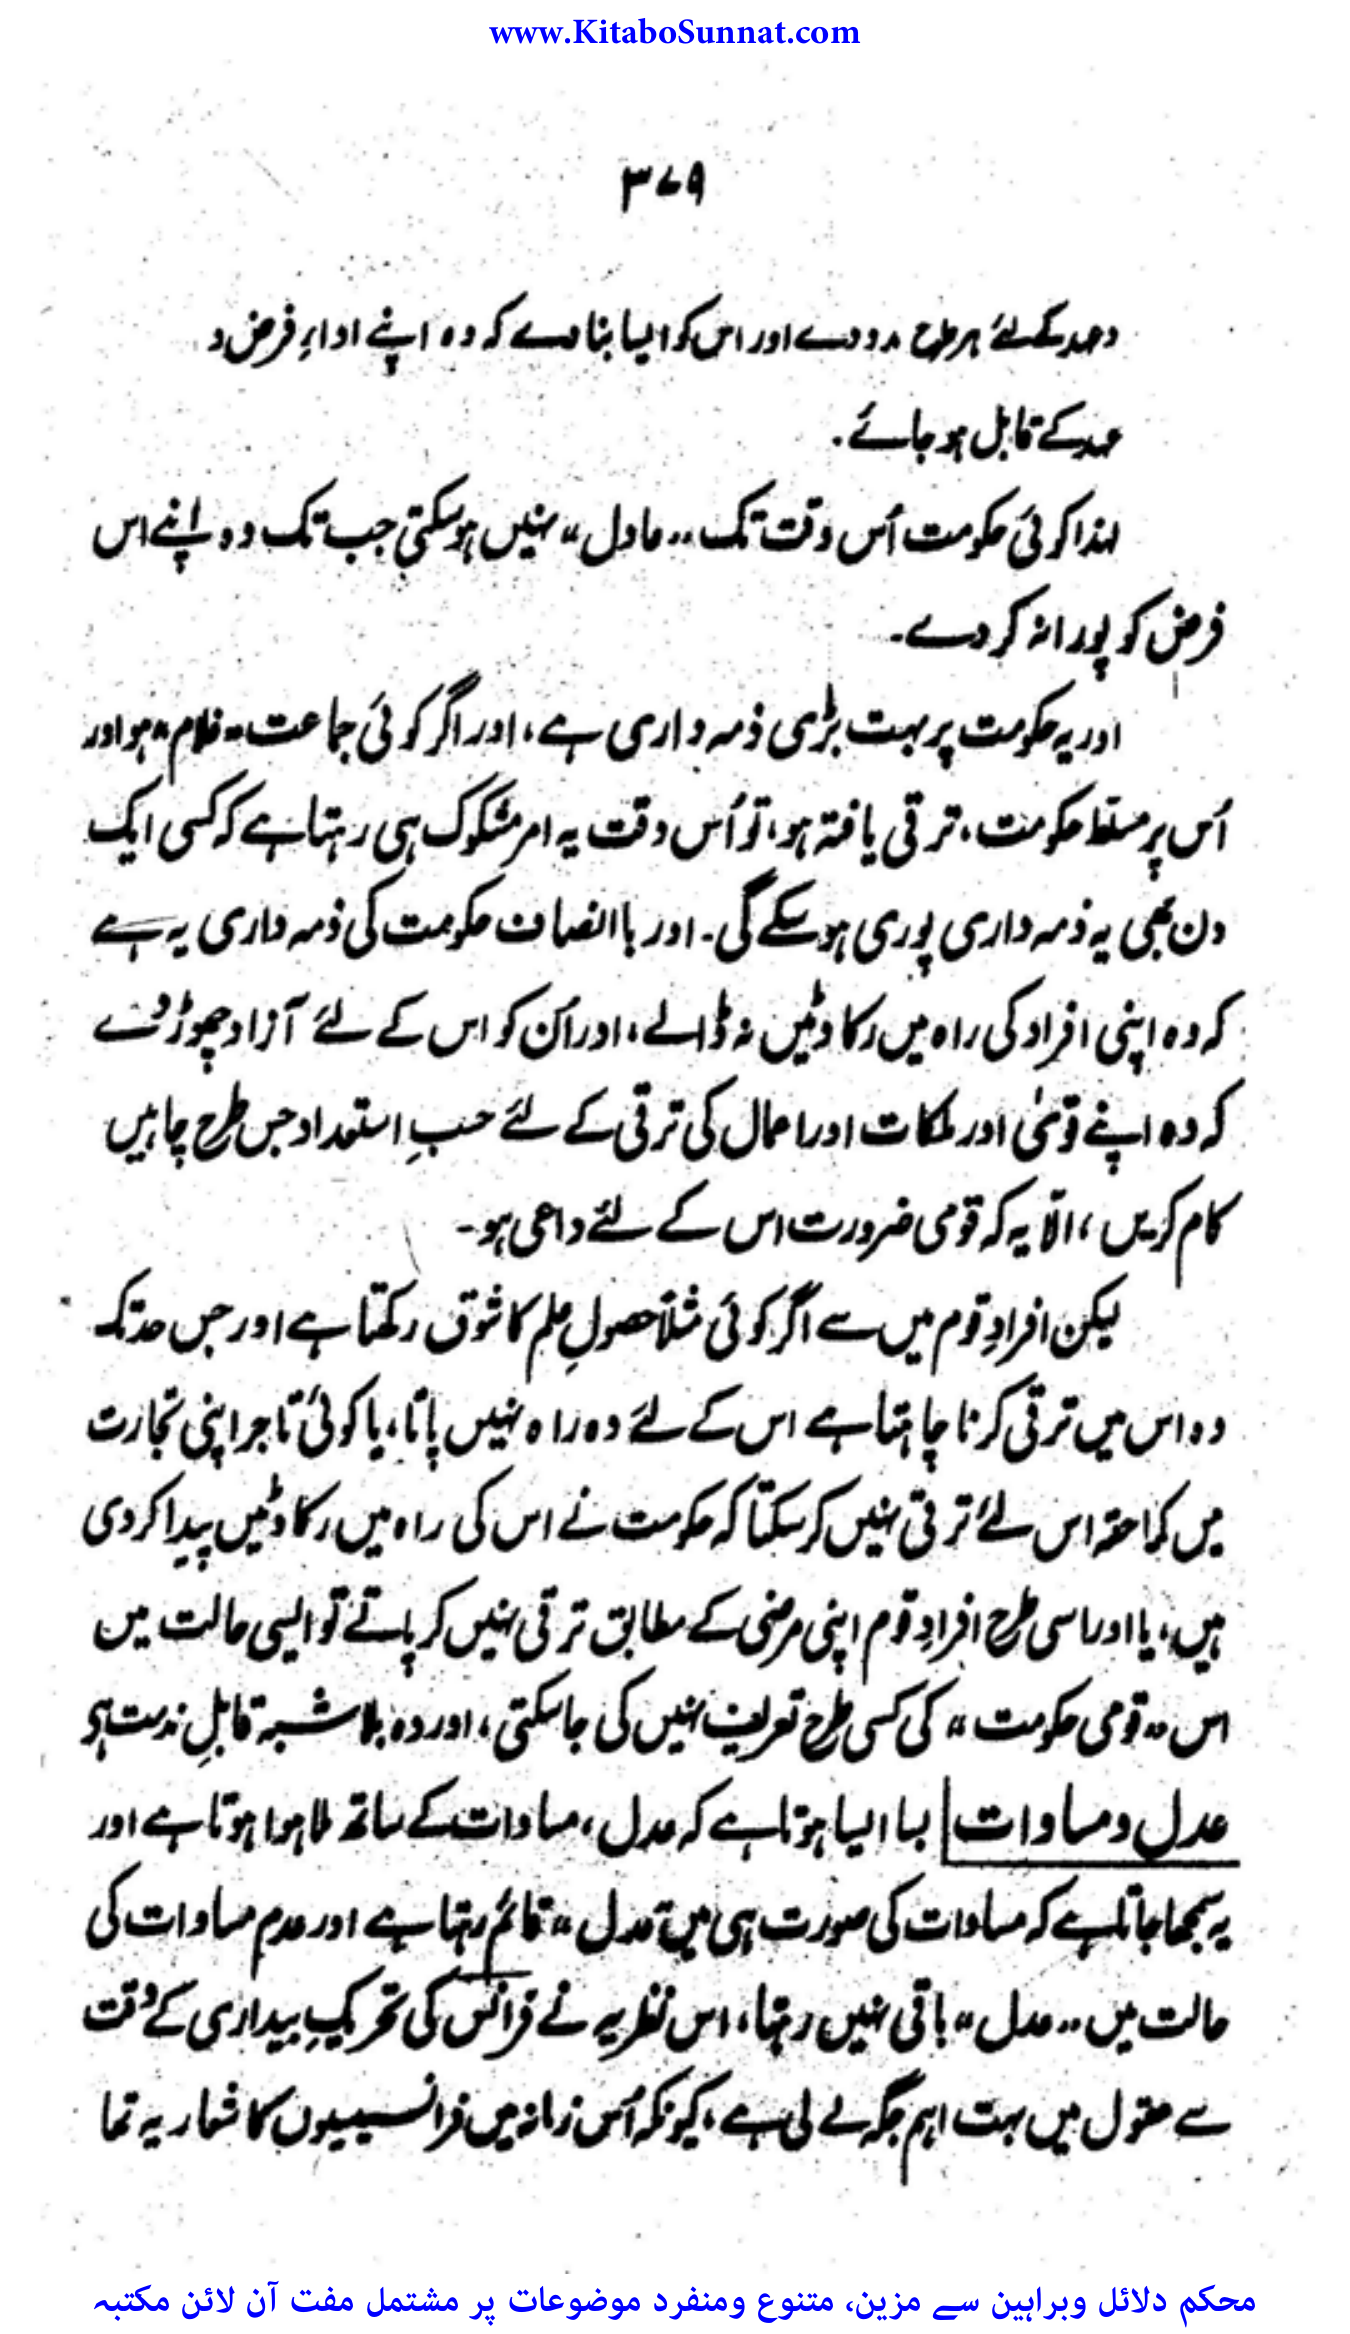 www.KitaboSunnat.com
۳۷۹
وعہد کے لئے ہر طرح مدد دے اور اس کو ایسا بنا دے کہ وہ اپنے اداءِ فرض و
عہد کے قابل ہو جائے۔
لہذا کوئی حکومت اُس وقت تک "عادل" نہیں ہو سکتی جب تک وہ اپنے اس
فرض کو پورا نہ کر دے۔
اور یہ حکومت پر بہت بڑی ذمہ داری ہے، اور اگر کوئی جماعت "غلام" ہو اور
اُس پر مسلط حکومت، ترقی یافتہ ہو، تو اُس وقت یہ امر مشکوک ہی رہتا ہے کہ کسی ایک
دن بھی یہ ذمہ داری پوری ہو سکے گی۔ اور باانصاف حکومت کی ذمہ داری یہ ہے
کہ وہ اپنی افراد کی راہ میں رکاوٹیں نہ ڈالے، اور اُن کو اس کے لئے آزاد چھوڑ دے
کہ وہ اپنے قویٰ اور ملکات اور اعمال کی ترقی کے لئے حسبِ استعداد جس طرح چاہیں
کام کریں، الّا یہ کہ قومی ضرورت اس کے لئے داعی ہو۔
لیکن افرادِ قوم میں سے اگر کوئی مثلاً حصولِ علم کا شوق رکھتا ہے اور جس حد تک
وہ اس میں ترقی کرنا چاہتا ہے اس کے لئے وہ راہ نہیں پاتا، یا کوئی تاجر اپنی تجارت
میں کماحقہٗ اس لئے ترقی نہیں کر سکتا کہ حکومت نے اس کی راہ میں رکاوٹیں پیدا کر دی
ہیں، یا اور اسی طرح افرادِ قوم اپنی مرضی کے مطابق ترقی نہیں کر پاتے تو ایسی حالت میں
اس "قومی حکومت" کی کسی طرح تعریف نہیں کی جا سکتی، اور وہ بلاشبہ قابلِ مذمت ہے
عدل و مساوات بسا ایسا ہوتا ہے کہ عدل، مساوات کے ساتھ ملا ہوا ہوتا ہے اور
یہ سمجھا جاتا ہے کہ مساوات کی صورت ہی میں "عدل" قائم رہتا ہے اور عدم مساوات کی
حالت میں "عدل" باقی نہیں رہتا، اس نظریہ نے فرانس کی تحریکِ بیداری کے وقت
سے عقول میں بہت اہم جگہ لے لی ہے، کیونکہ اُس زمانہ میں فرانسیسیوں کا شعار یہ تھا
محکم دلائل وبراہین سے مزین، متنوع ومنفرد موضوعات پر مشتمل مفت آن لائن مکتبہ